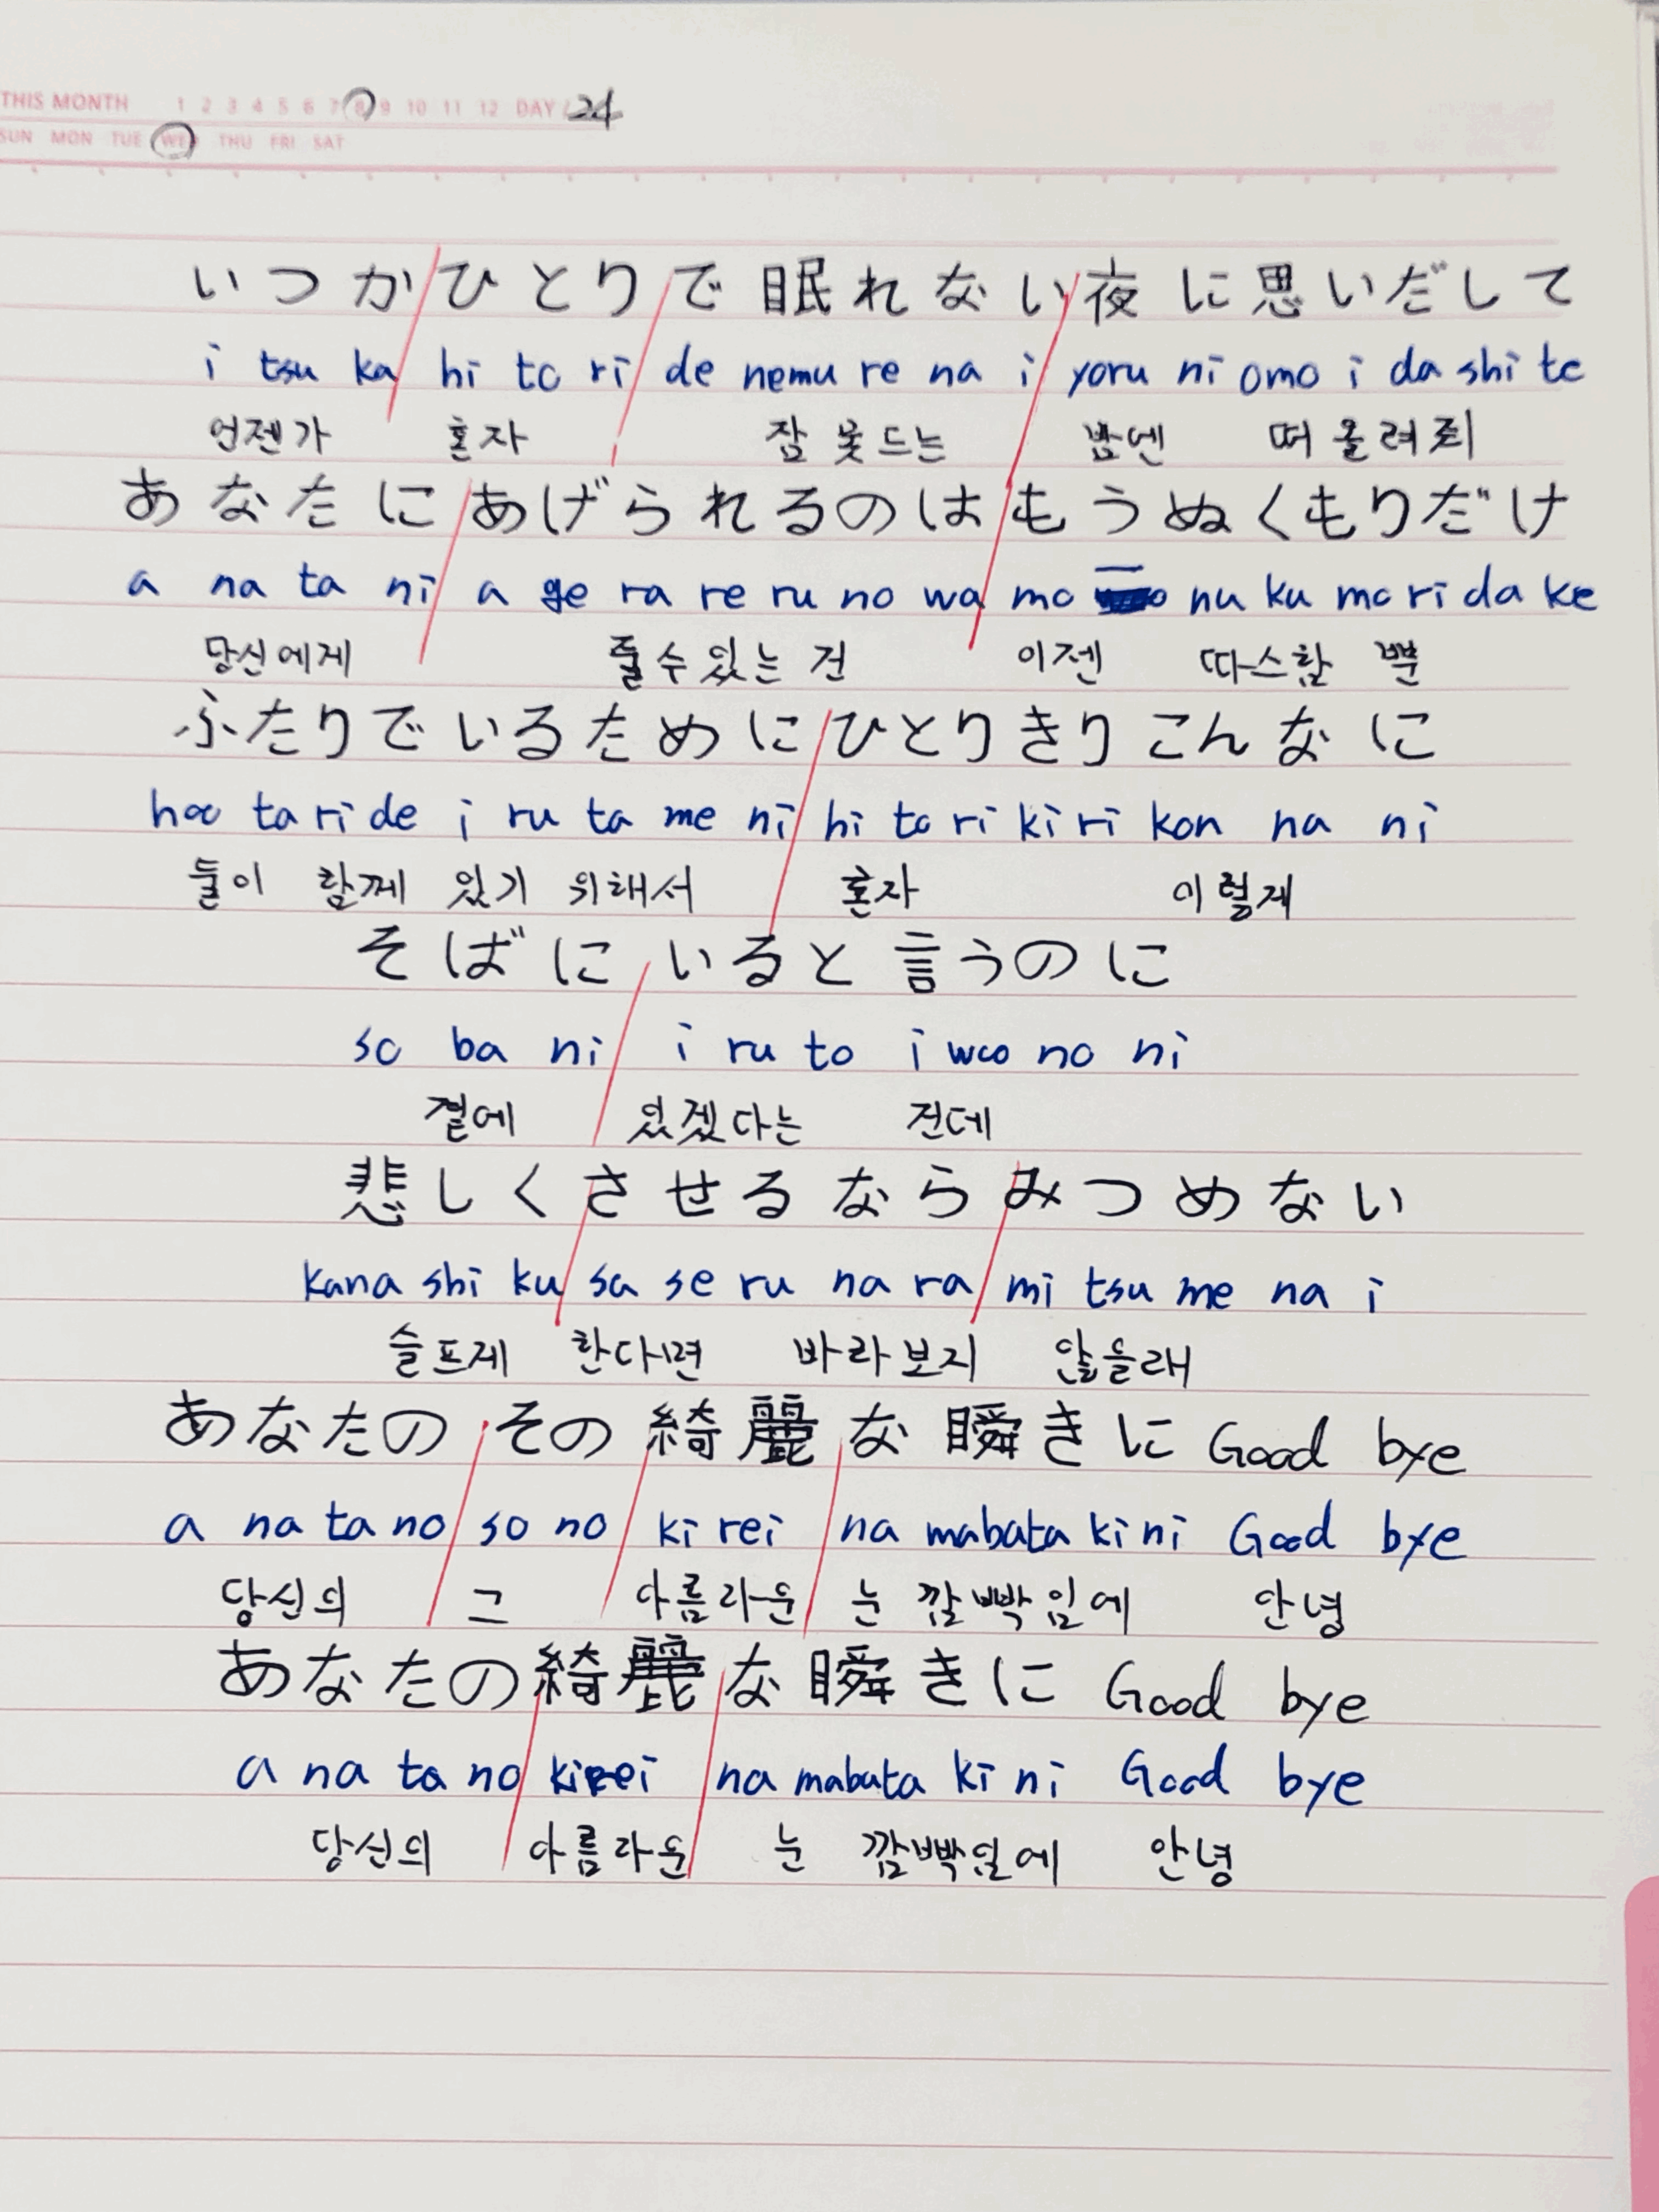 THIS MONTH 1 2 3 4 5 6 7 8 9 10 11 12 DAY / 24
SUN MON TUE WED THU FRI SAT
いつかひとりで眠れない夜に思いだして
i tsu ka hi to ri de nemu re na i yoru ni omo i da shi te
언젠가 혼자 잠 못 드는 밤엔 떠올려줘
あなたにあげられるのはもうぬくもりだけ
a na ta ni a ge ra re ru no wa mo nu ku mo ri da ke
당신에게 줄 수 있는 건 이젠 따스함 뿐
ふたりでいるためにひとりきりこんなに
hoo ta ri de i ru ta me ni hi to ri ki ri kon na ni
둘이 함께 있기 위해서 혼자 이렇게
そばにいると言うのに
so ba ni i ru to i woo no ni
곁에 있겠다는 건데
悲しくさせるならみつめない
kana shi ku sa se ru na ra mi tsu me na i
슬프게 한다면 바라보지 않을래
あなたのその綺麗な瞬きに Good bye
a na ta no so no ki rei na mabata ki ni Good bye
당신의 그 아름다운 눈 깜빡임에 안녕
あなたの綺麗な瞬きに Good bye
a na ta no ki rei na mabata ki ni Good bye
당신의 아름다운 눈 깜빡임에 안녕